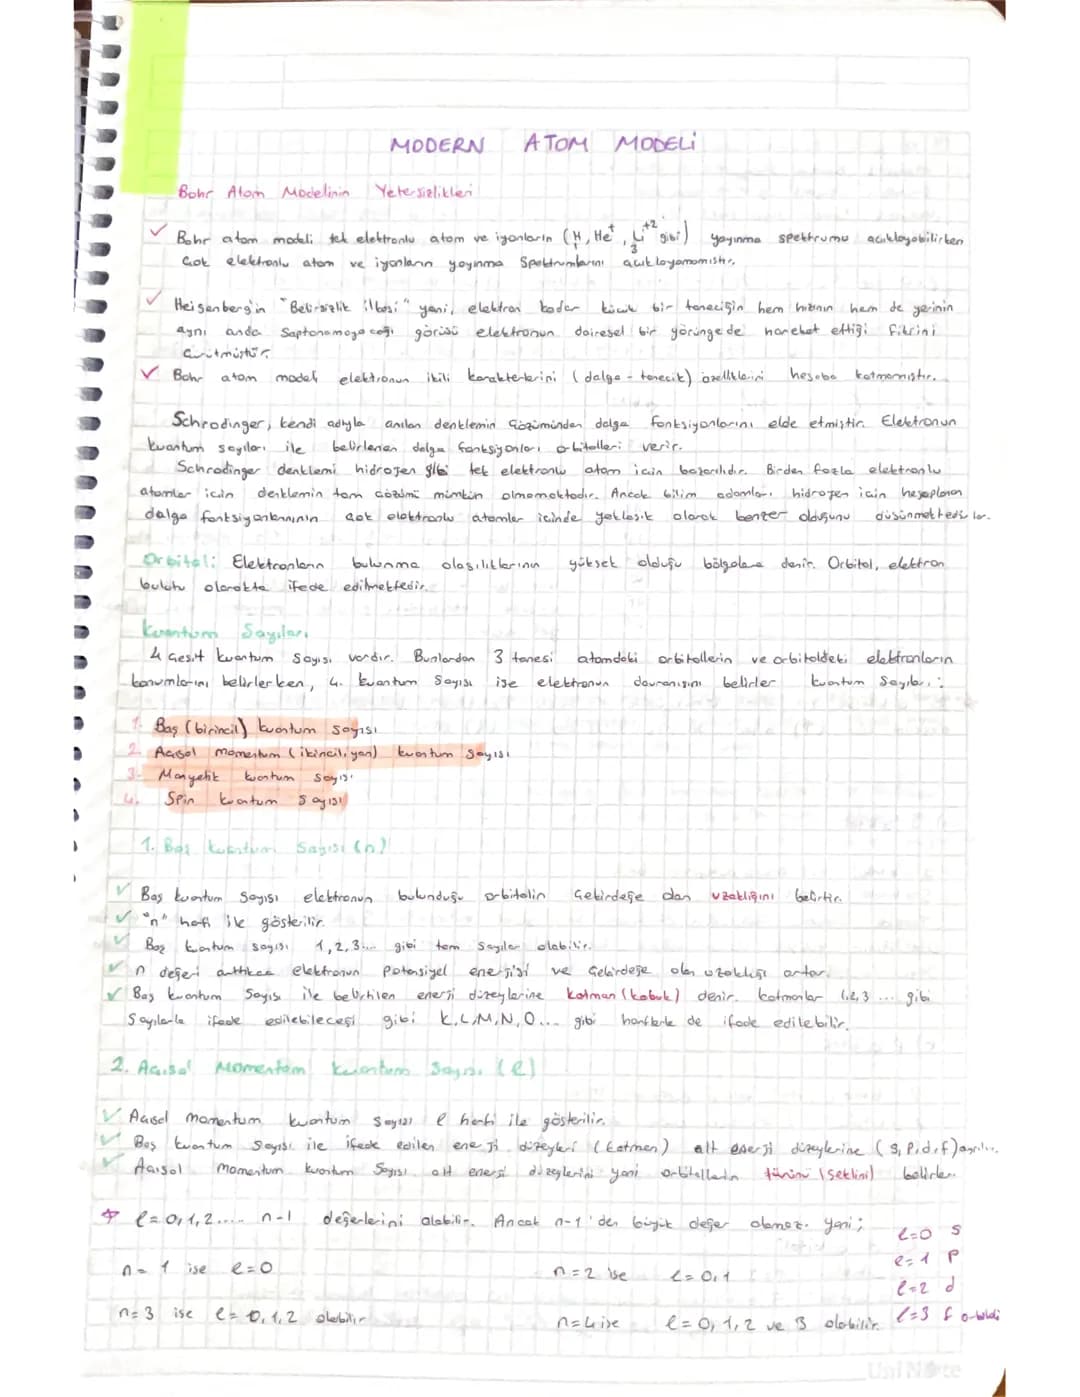 MODERN ATOM MODELİ
Bohr Atom Modelinin Yetersizlikleri
✓ Bohr atom modeli tek elektronlu atom ve iyonların (₁H, He⁺, ₃Li⁺² gibi) yayınma spektrumu açıklayabilirken
Çok elektronlu atom ve iyonların yayınma Spektrumlarını açıklayamamıştır.
✓ Heisenberg'in "Belirsizlik ilkesi" yani, elektron kadar küçük bir taneciğin hem hızının hem de yerinin
aynı anda Saptanamayacağı görüşü elektronun dairesel bir yörüngede hareket ettiği fikrini
Çürütmüştür.
✓ Bohr atom modeli elektronun ikili karakterlerini (dalga - tanecik) özelliklerini hesaba katmamıştır.
Schrodinger, kendi adıyla anılan denklemin Çözümünden dalga fonksiyonlarını elde etmiştir. Elektronun
kuantum sayıları ile belirlenen dalga fonksiyonları orbitalleri verir.
Schrodinger denklemi hidrojen gibi tek elektronlu atom için başarılıdır. Birden fazla elektronlu
atomlar için denklemin tam çözümü mümkün olmamaktadır. Ancak bilim adamları hidrojen için hesaplanan
dalga fonksiyonlarının çok elektronlu atomlar içinde yaklaşık olarak benzer olduğunu düşünmektedirler.
Orbital: Elektronların bulunma olasılıklarının yüksek olduğu bölgelere denir. Orbital, elektron
bulutu olarakta ifade edilmektedir.
Kuantum Sayıları
4 Çeşit kuantum sayısı vardır. Bunlardan 3 tanesi atomdaki orbitallerin ve orbitaldeki elektronların
konumlarını belirlerken, 4. kuantum sayısı ise elektronun davranışını belirler kuantum Sayıları:
1. Baş (birincil) kuantum sayısı
2. Açısal momentum (ikincil, yan) kuantum sayısı
3- Manyetik kuantum sayısı
4. Spin kuantum sayısı
1. Baş kuantum Sayısı (n)
✓ Baş kuantum sayısı elektronun bulunduğu orbitalin Çekirdeğe dan uzaklığını belirtir.
✓ "n" harfi ile gösterilir.
✓ Baş kuantum sayısı 1, 2, 3... gibi tam sayılar olabilir.
✓ n değeri arttıkça elektronun Potansiyel enerjisi ve Çekirdeğe olan uzaklığı artar.
✓ Baş kuantum Sayısı ile belirtilen enerji düzeylerine katman (kabuk) denir. katmanlar 1,2,3 ... gibi
Sayılarla ifade edilebileceği gibi K, L, M, N, O... gibi harflerle de ifade edilebilir.
2. Açısal Momentum kuantum Sayısı (ℓ)
✓ Açısal momentum kuantum sayısı ℓ harfi ile gösterilir.
✓ Baş kuantum Sayısı ile ifade edilen enerji düzeyleri (katman) alt enerji düzeylerine (s, p, d, f) ayrılır.
✓ Açısal momentum kuantum Sayısı alt enerji düzeylerini yani orbitallerin türünü (şeklini) belirler.
ℓ = 0, 1, 2..... n-1 değerlerini alabilir. Ancak n-1'den büyük değer alamaz. Yani;
ℓ=0 s
ℓ=1 p
n = 1 ise ℓ=0 n=2 ise ℓ=0,1
ℓ=2 d
n=3 ise ℓ= 0, 1, 2 olabilir n=4 ise ℓ=0, 1, 2 ve 3 olabilir.
ℓ=3 f orbitali
UniNote